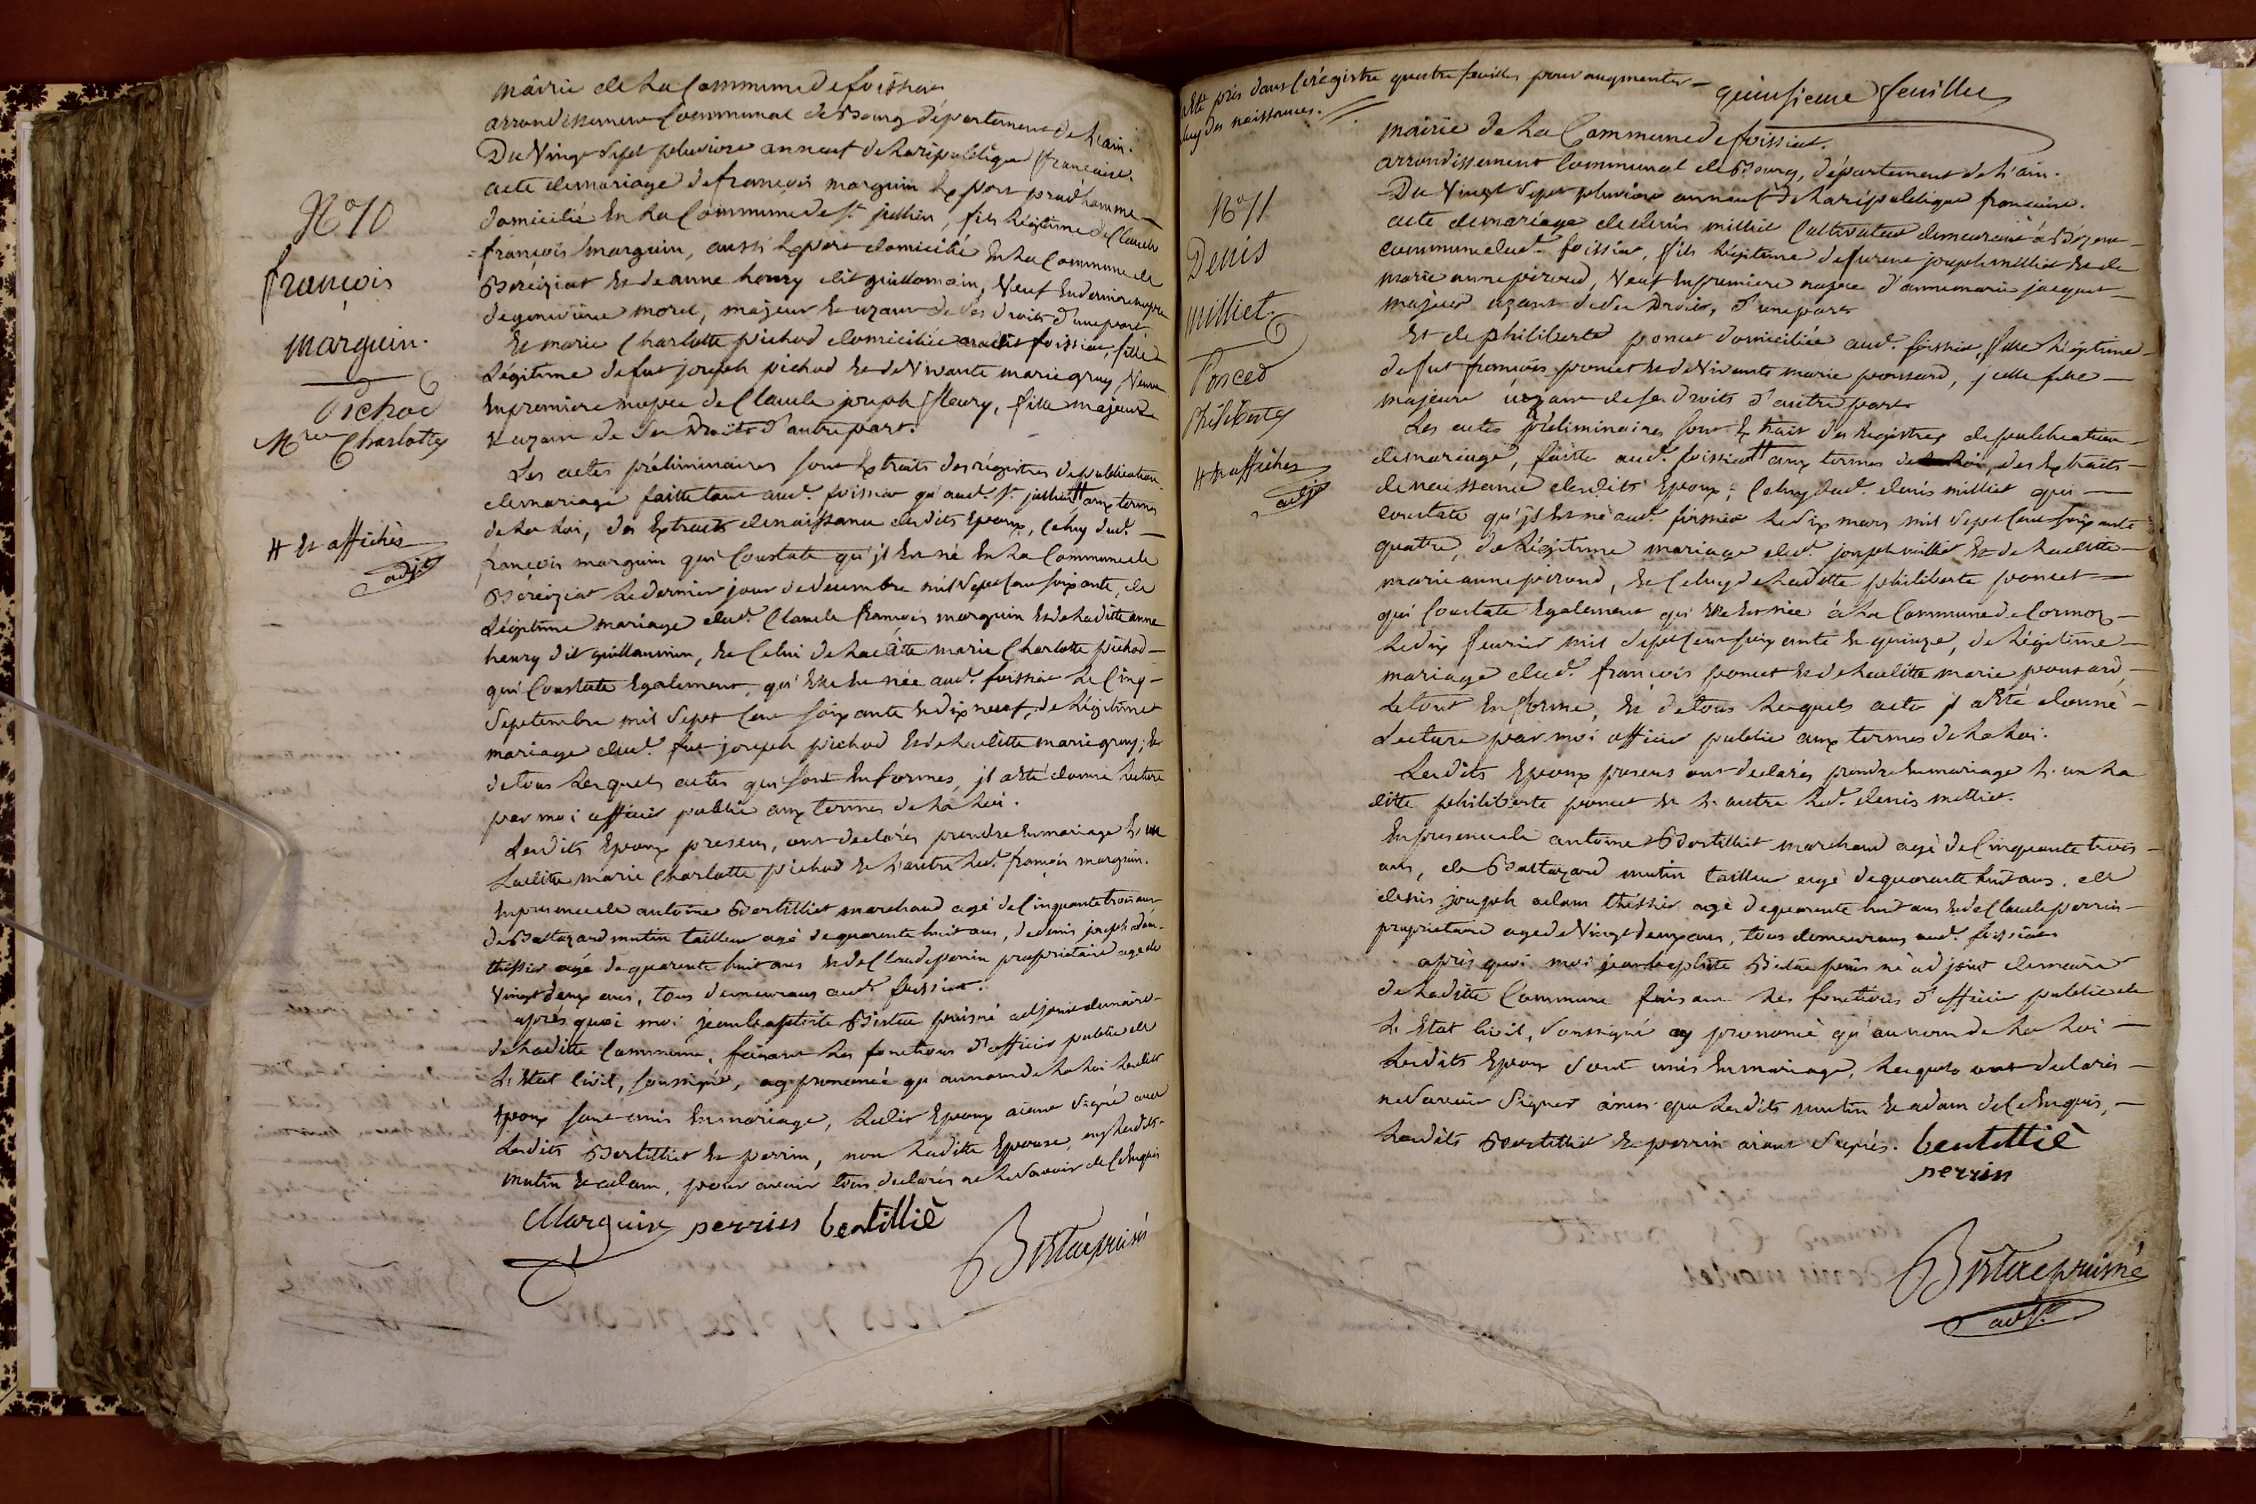 mairie de la Commune de foissiat
arrondissement Communal de Bourg département de l'ain.
Du Vingt Sept pluviose an neuf de la république francaise.
acte de mariage de francois marguin Ex port prudhomme
domicilié En la Commune de St. jullien, fils légitime de Claude
francois marguin, aussi domicilié En la Commune de
Béréziat Et de anne henry dit guillomain, Veuf En derniere nopce
de genevieve morel, majeur Et uzant de Ses Droits d'une part.
Et marie Charlotte pichod domiciliée audit foissiat, fille
Légitime de fut joseph pichod Et de Vivante marie gruy, Veuve
En premiere nopce de Claude joseph fleury, fille majeure
Et uzant de Ses Droits d'autre part.
Les actes préliminaires sont Extraits des régistres de publication
de mariage faitte tant aud. foissiat qu'aud. St. jullien # aux termes
de la Loi, des Extraits de naissance desdits Epoux, Celuy dud.
francois marguin qui Constate qu'il Est né En la Commune de
Béréziat Le dernier jour de decembre mil Sept Cent Soixante, de
Légitime mariage dud. Claude francois marguin Et de Laditte anne
henry dit guillaumin, Et Celui de Laditte marie Charlotte pichod
qui Constate Egalement qu'Elle Est née aud. foissiat Le Cinq
Septembre mil Sept Cent Soixante Et dix neuf, de Légitime
mariage dud. fut joseph pichod Et de Laditte marie gruy; Et
de tous Lesquels actes qui sont En formes, jl a Eté donné Lecture
par moi officier public aux termes de la Loi.
Lesdits Epoux presens, ont declarés prendre En mariage L'un
Laditte marie Charlotte pichod Et L'autre Led. francois marguin.
En presence de antoine Bertilliet marchand agé de Cinquante trois ans
de Baltazard mutin tailleur agé de quarente huit ans, de denis joseph adam
thissier agé de quarente huit ans Et de Claude perrin proprietaire agé de
Vingt deux ans, tous demeurans aud. foissiat.
après quoi moi jean baptiste Bistac puisné adjoint du maire
de Laditte Commune, faisant Les fonctions d'officier public de
L'Etat Civil, soussigné, ay prononcé qu'au nom de la Loi Lesdits
Epoux sont unis En mariage, Ledit Epoux aiant Signé avec
Lesdits Bertilliet Et perrin, non Laditte Epouse, ny Lesdits
mutin Et adam, pour avoir tous declarés ne Le Savoir de Ce Enquis
Marguin perrin bertilliè
Bistac puisné
No. 10
françois
marguin.
Pichod
Mrie Charlotte
# Et affichés
adjt
Eté pris dans Ce régistre quatre feuilles pour augmenter
Celuy des naissances.
quinsieme feuillet
mairie de la Commune de foissiat.
arrondissement Communal de Bourg, département de l'ain.
Du Vingt Sept pluviose an neuf de la république francaise.
acte de mariage de denis milliet Cultivateur demeurant à
Commune dud. foissiat, fils Légitime de furent joseph milliet Et de
marie anne piroud, Veuf En premiere nopce d'anne marie jacquet
majeur uzant de Ses Droits, d'une part
Et de philiberte poncet domiciliée aud. foissiat, fille Légitime
de fut francois poncet Et de Vivante marie ponsard, jcelle fille
majeure uzant de Ses Droits d'autre part
Les actes préliminaires sont Extrait des Régistres de publication
de mariage, faitte aud. foissiat # aux termes de la Loi, des Extraits
de naissance desdits Epoux; Celuy dud. denis milliet qui
Constate qu'jl Est né aud. foissiat Le dix mars mil Sept Cent Soixante
quatre, de Légitime mariage dud. joseph milliet Et de Laditte
marie anne piroud, Et Celuy de Laditte philiberte poncet
qui Constate Egalement qu'Elle Est née à La Commune de Cormoz
Le dix fevrier mil Sept Cent Soixante Et quinze, de Légitime
mariage dud. francois poncet Et de Laditte marie ponsard,
Le tout En forme, Et de tous Lesquels acte jl a Eté donné
Lecture par moi officier public aux termes de la Loi.
Lesdits Epoux presens ont declarés prendre En mariage L'un La
ditte philiberte poncet Et L'autre Led. denis milliet.
En presence de antoine Bertilliet marchand agé de Cinquante trois
ans, de Baltazard mutin tailleur agé de quarente huit ans, de
denis joseph adam thissier agé de quarente huit ans Et de Claude perrin
proprietaire agé de Vingt deux ans, tous demeurans aud. foissiat
après quoi moi jean baptiste Bistac puisné adjoint du maire
de Laditte Commune faisant Les fonctions d'officier public de
L'Etat Civil, soussigné ay prononcé qu'au nom de la Loi
Lesdits Epoux sont unis En mariage, Lesquels ont declarés
ne Savoir Signer ainsi que Lesdits mutin Et adam de Ce Enquis,
Lesdits Bertilliet Et perrin aiant Signés. bertilliè
perrin
Bistac puisné
adjt.
No. 11
Denis
milliet.
Poncet
Philiberte
# Et affichés
adjt